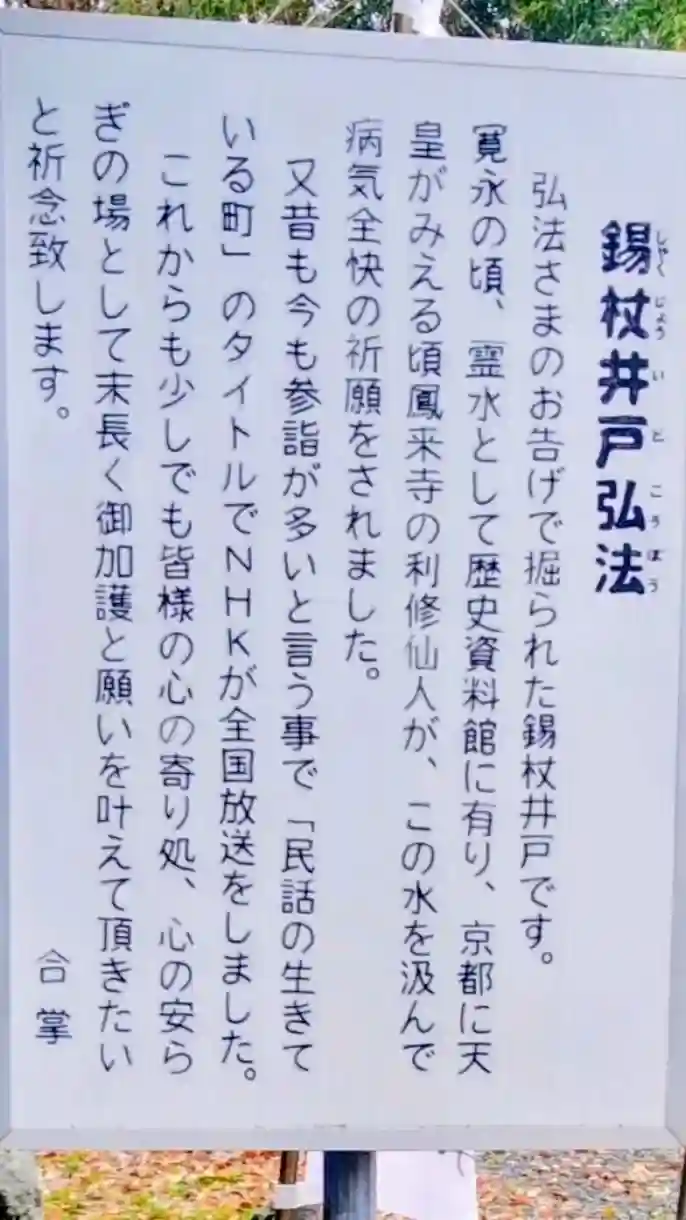 錫杖井戸弘法
しゃくじょういどこうぼう
弘法さまのお告げで掘られた錫杖井戸です。
寛永の頃、霊水として歴史資料館に有り、京都に天
皇がみえる頃鳳来寺の利修仙人が、この水を汲んで
病気全快の祈願をされました。
又昔も今も参詣が多いと言う事で「民話の生きて
いる町」のタイトルでNHKが全国放送をしました。
これからも少しでも皆様の心の寄り処、心の安ら
ぎの場として末長く御加護と願いを叶えて頂きたい
と祈念致します。
合掌